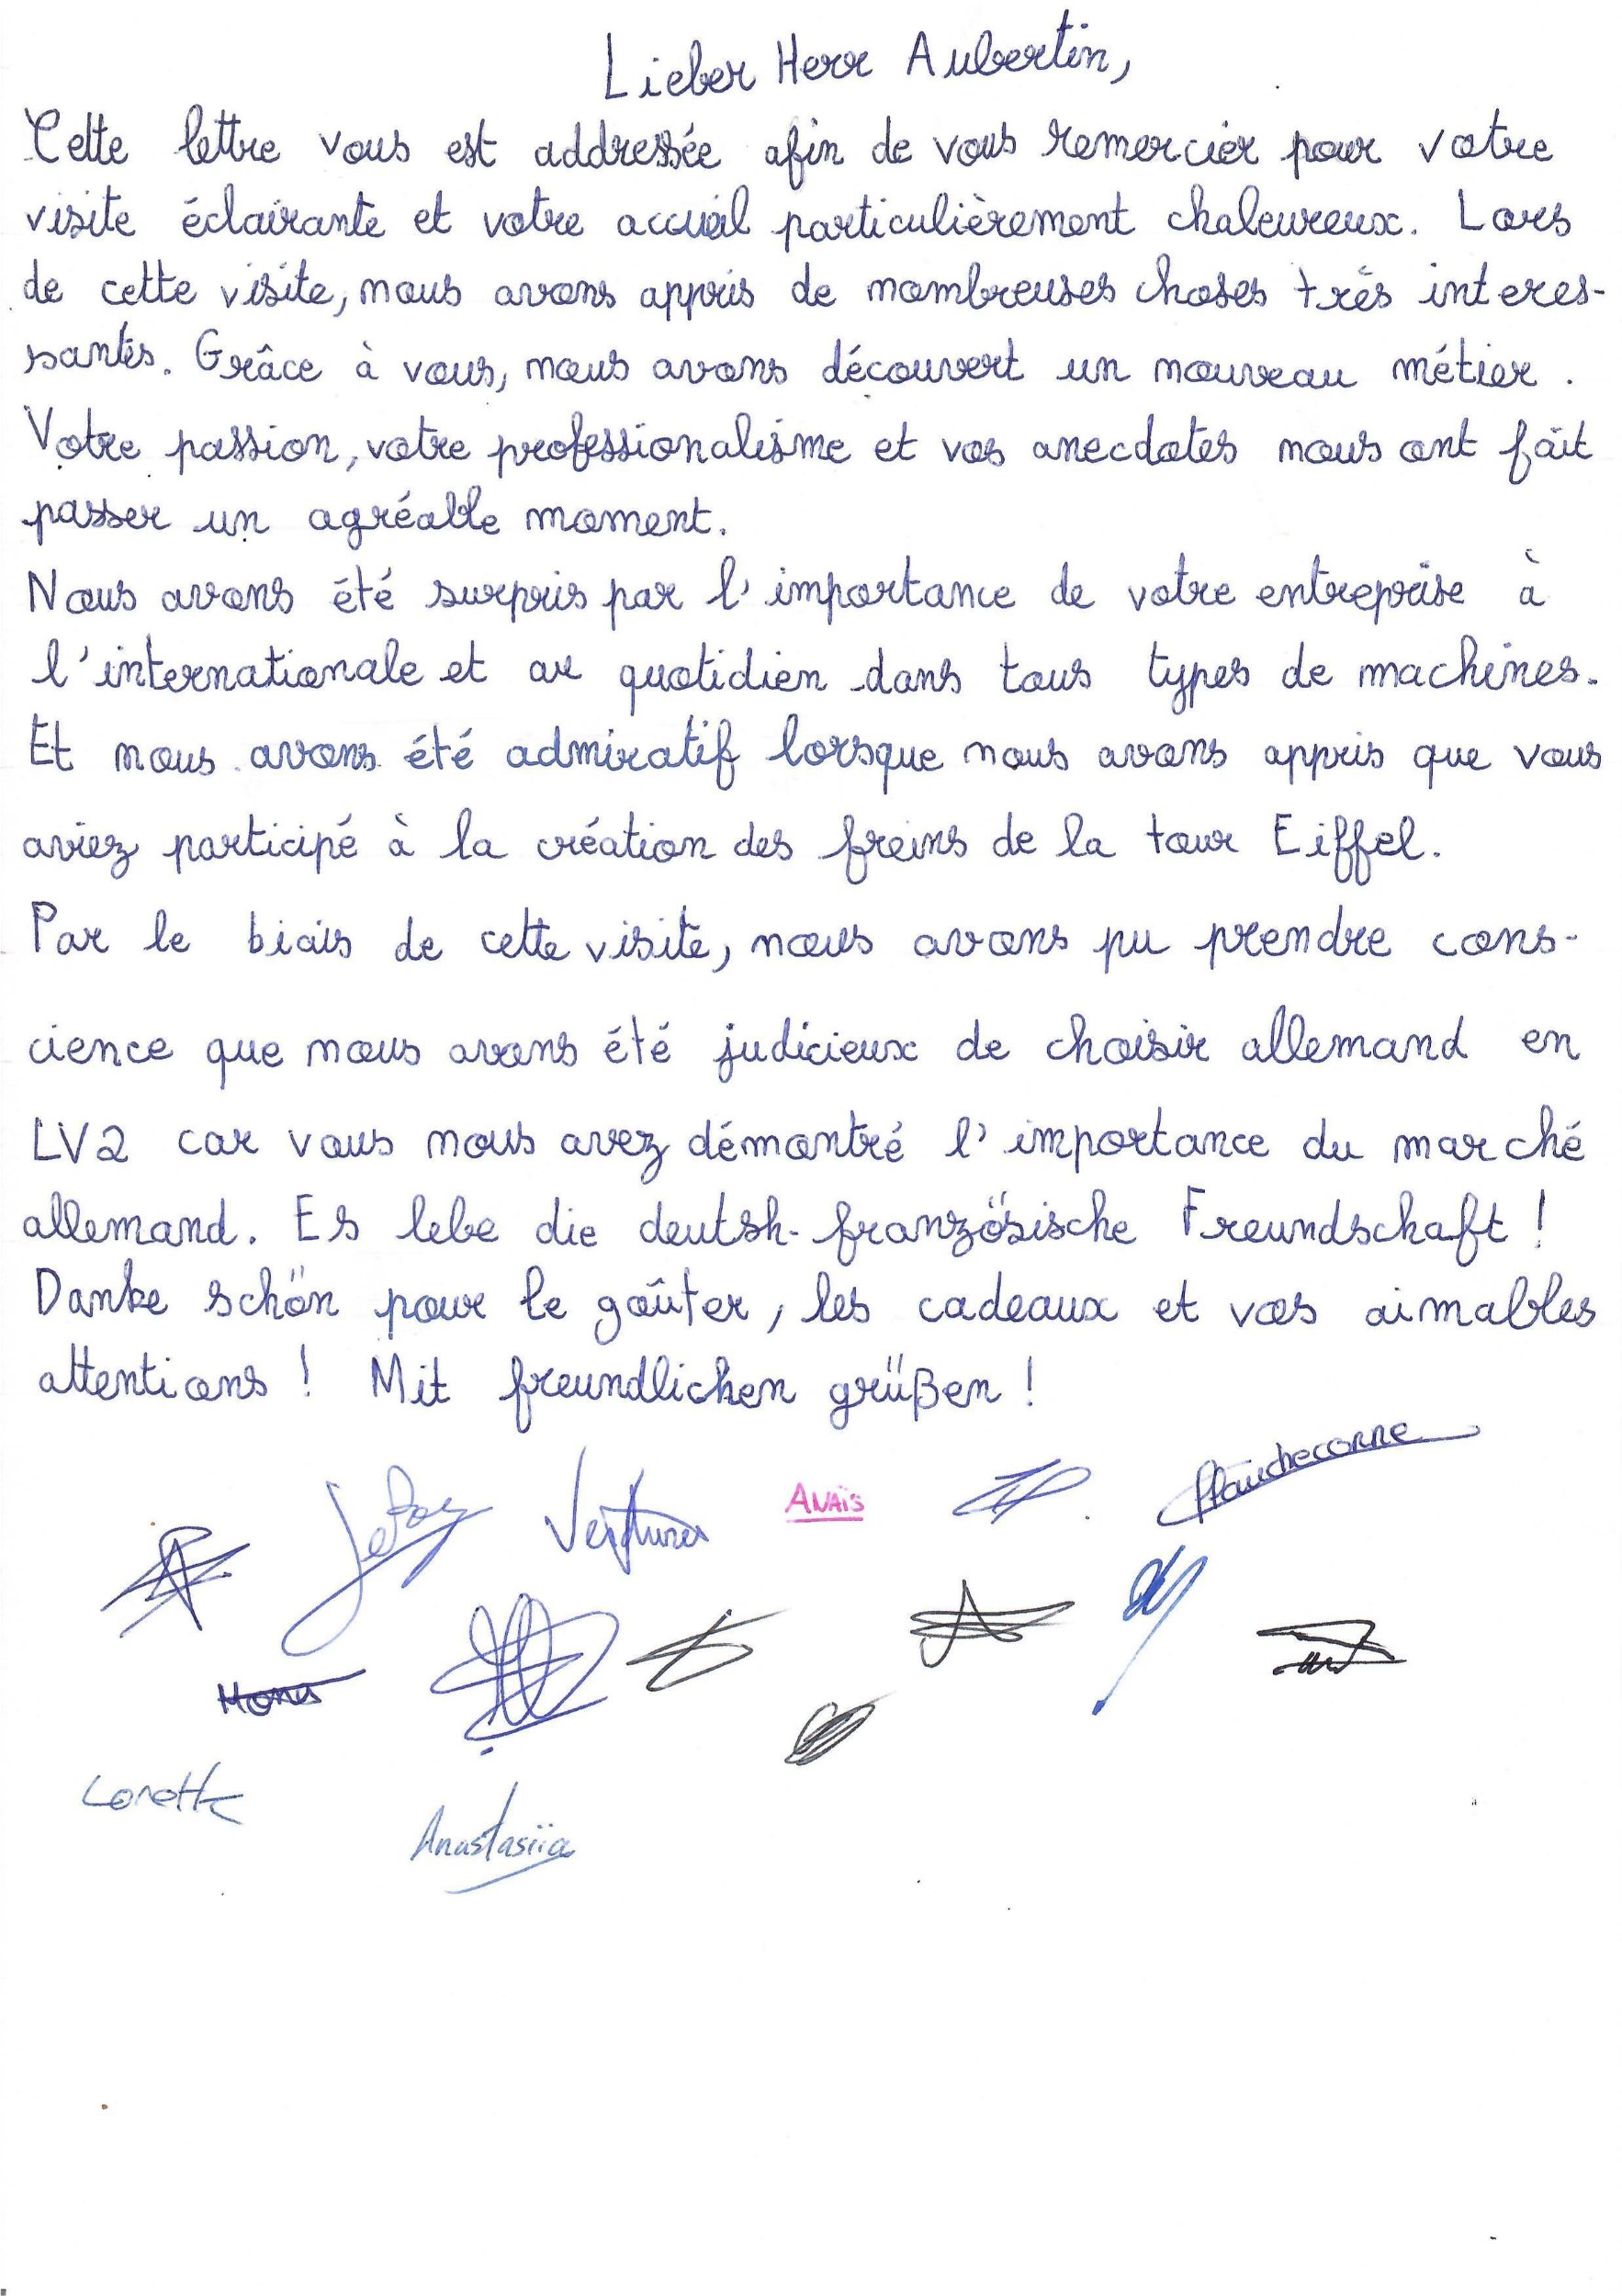 Lieber Herr Aubertin,
Cette lettre vous est addressée afin de vous remercier pour votre
visite éclairante et votre accueil particulièrement chaleureux. Lors
de cette visite, nous avons appris de nombreuses choses très interes-
santes. Grâce à vous, nous avons découvert un nouveau métier.
Votre passion, votre professionalisme et vos anecdotes nous ont fait
passer un agréable moment.
Nous avons été surpris par l'importance de votre entreprise à
l'internationale et au quotidien dans tous types de machines.
Et nous avons été admiratif lorsque nous avons appris que vous
aviez participé à la création des freins de la tour Eiffel.
Par le biais de cette visite, nous avons pu prendre cons-
cience que nous avons été judicieux de choisir allemand en
LV2 car vous nous avez démontré l'importance du marché
allemand. Es lebe die deutsh-französische Freundschaft !
Danke schön pour le goûter, les cadeaux et vos aimables
attentions ! Mit freundlichen grüßen !
Anaïs
Anastasiia